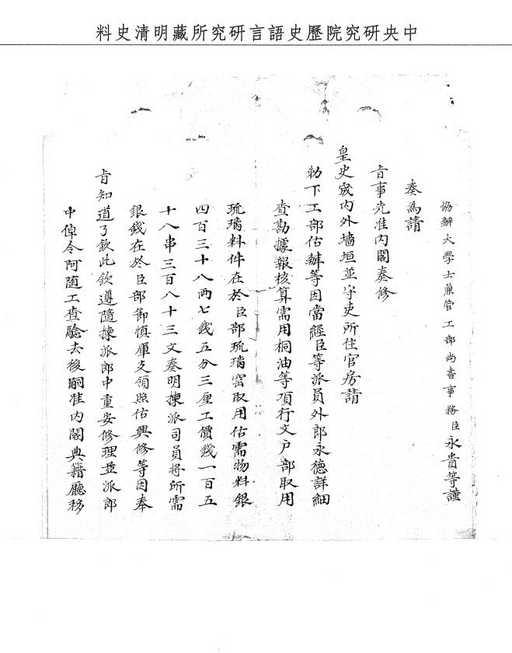 中央研究院歷史語言研究所藏明清史料
協辦大學士兼管工部尚書事務臣永貴等謹
奏為請
旨事先准內閣奏修
皇史宬內外墻垣並守吏所住官房請
勅下工部估辦等因當經臣等派員外郎永德詳細
查勘據報核算需用桐油等項行文戶部取用
琉璃料件在於臣部琉璃窰取用估需物料銀
四百三十八兩七錢五分三厘工價錢一百五
十八串三百八十三文奏明揀派司員將所需
銀錢在於臣部節慎庫支領照估興修等因奉
旨知道了欽此欽遵隨揀派郎中重安修理並派郎
中倬令阿隨工查驗去後嗣准內閣典籍廳移